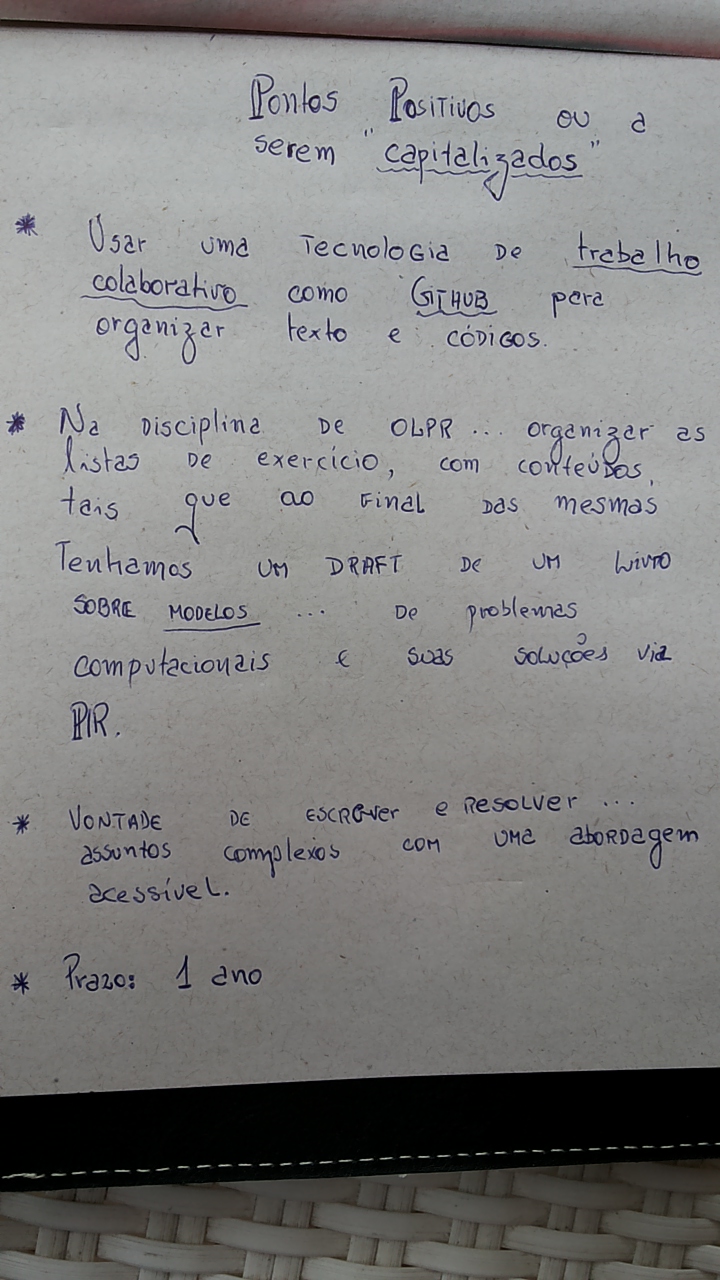 Pontos Positivos ou a
serem "capitalizados"
* Usar uma Tecnologia de trabalho
colaborativo como GITHUB para
organizar texto e CÓDIGOS.
* Na Disciplina de OLPR ... organizar as
listas de exercício, com conteúdos,
tais que ao Final das mesmas
Tenhamos um DRAFT de um livro
SOBRE MODELOS ... De problemas
computacionais e suas soluções via
PIR.
* VONTADE DE ESCREVER e RESOLVER ...
assuntos complexos com uma abordagem
acessível.
* Prazo: 1 ano